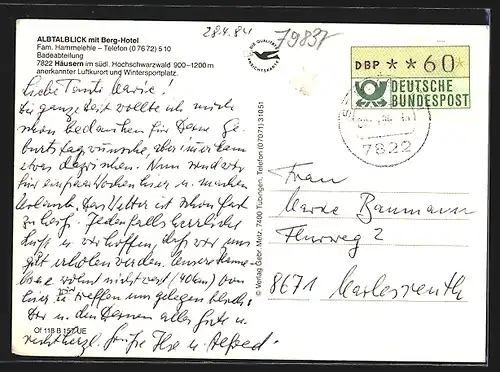 ALBTALBLICK mit Berg-Hotel
Fam. Hammelehle – Telefon (0 76 72) 5 10
Badeabteilung
7822 Häusern im südl. Hochschwarzwald 900–1200 m
anerkannter Luftkurort und Wintersportplatz.
28.4.84
79837
DIE QUALITÄTS
ANSICHTSKARTE
DBP ✶✶60
DEUTSCHE
BUNDESPOST
7822
Liebe Tante Marie!
die ganze Zeit wollte ich mich
schon bedanken für Deine Ge-
burtstagswünsche, aber immer kam
etwas dazwischen. Nun sind wir
für ein paar Wochen hier u. machen
Urlaub. Das Wetter ist schon fast
zu heiß. Jedenfalls herrliche
Luft u. wir hoffen, daß wir uns
gut erholen werden. Unsere
wohnt nicht weit (40 km) von
hier, zu treffen uns gelegentlich.
Dir u. den Deinen alles Gute u.
recht herzl. Grüße Ilse u. Alfred.
© Verlag Gebr. Metz, 7400 Tübingen, Telefon (0 70 71) 3 10 51
Frau
Marie Baumann
Flurweg 2
8671 Marlesreuth
Of 118 B 157 UE